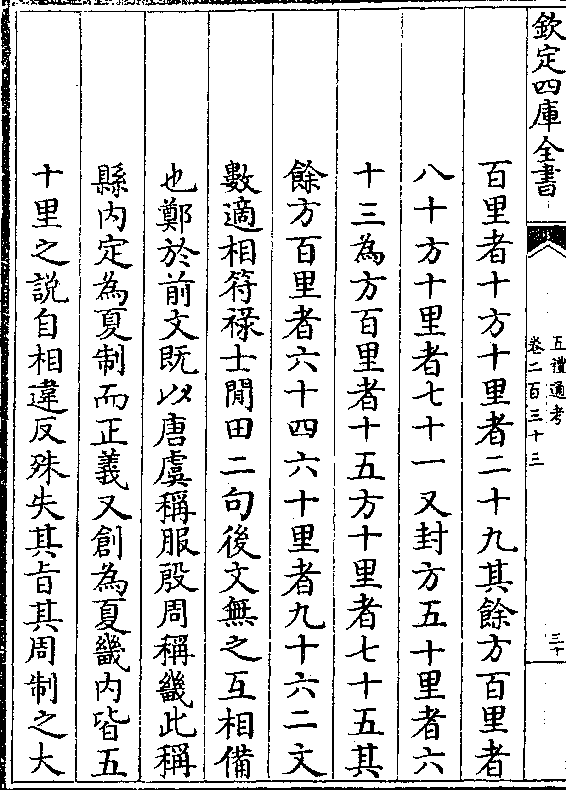 欽定四庫全書
五禮通考
卷二百三十三
三十
百里者十方十里者二十九其餘方百里者
八十方十里者七十一又封方五十里者六
十三為方百里者十五方十里者七十五其
餘方百里者六十四六十里者九十六二文
數適相符祿士閒田二句後文無之互相備
也鄭於前文既以唐虞稱服殷周稱畿此稱
縣内定為夏制而正義又創為夏畿内皆五
十里之説自相違反殊失其㫖其周制之大